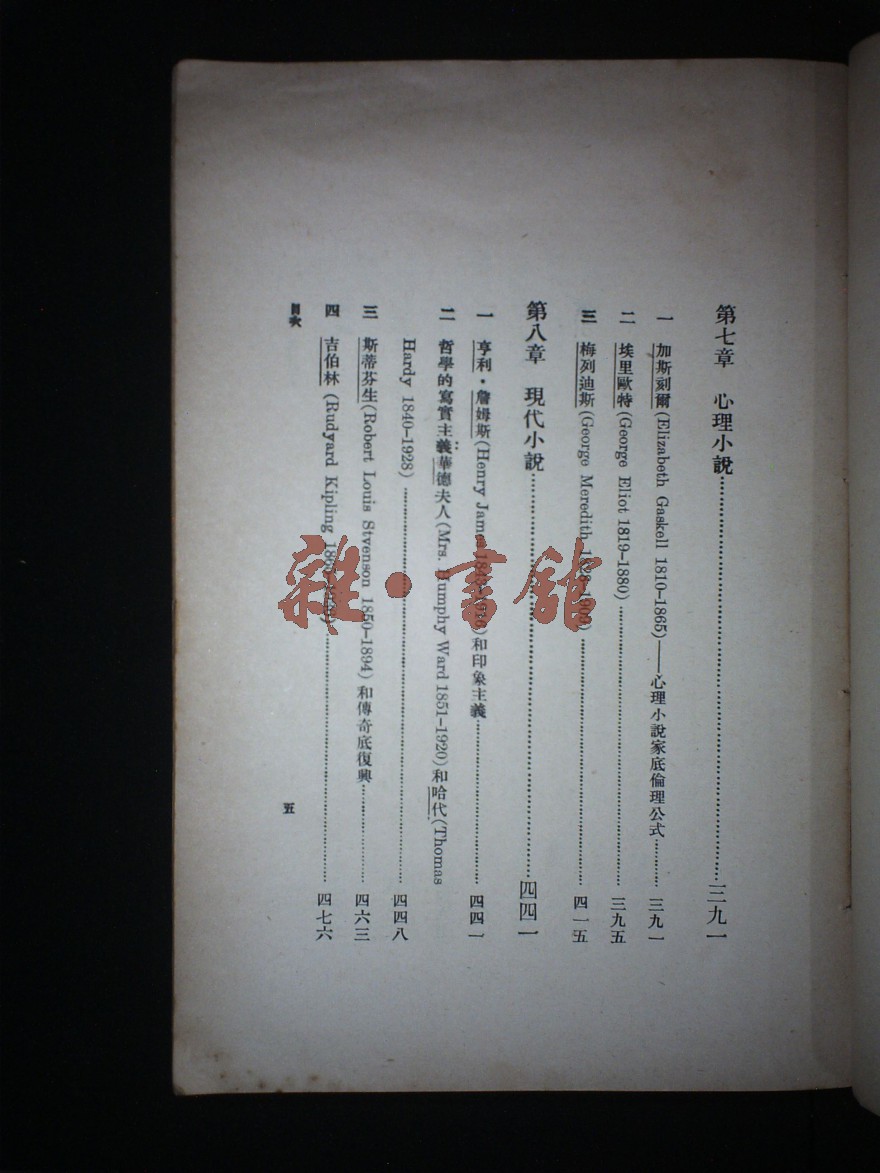 第七章 心理小說……三九一
一 加斯刻爾(Elizabeth Gaskell 1810–1865)——心理小說家底倫理公式……三九一
二 埃里歐特(George Eliot 1819–1880)……三九五
三 梅列迪斯(George Meredith 1828–1909)……四一五
第八章 現代小說……四四一
一 亨利·詹姆斯(Henry James 1843–1916)和印象主義……四四一
二 哲學的寫實主義華德夫人(Mrs. Humphy Ward 1851–1920)和哈代(Thomas
Hardy 1840–1928)……四四八
三 斯蒂芬生(Robert Louis Stvenson 1850–1894)和傳奇底復興……四六三
四 吉伯林(Rudyard Kipling……四七六
目次
五
雜·書館